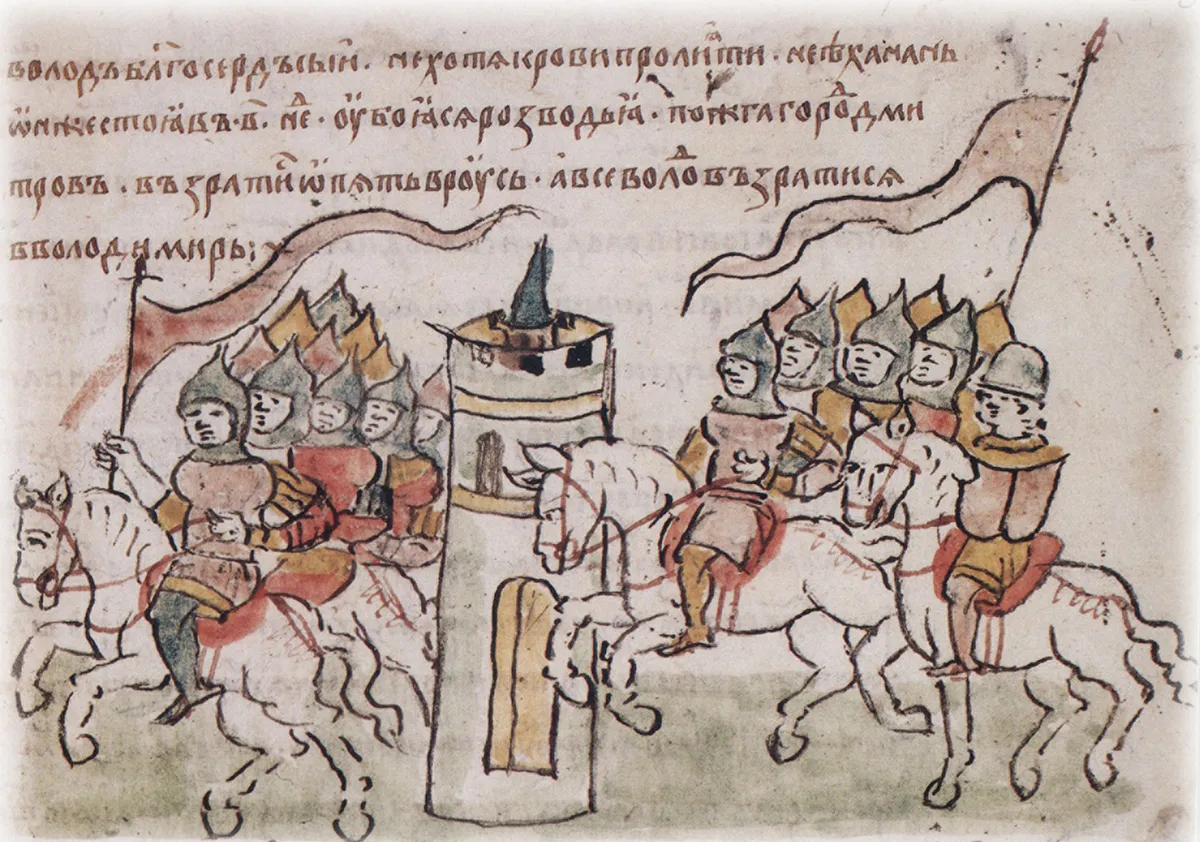 володъ бл҃госердъ сыи . не хотѧ крови пролиꙗти . не ѣха на нь
ѡн же стоꙗвъ . в҃ . неⷣ . оубоꙗсѧ розводьꙗ . пожга гороⷣ дми
тровъ . възратиⷭ ѡпѧть в роусь . а всеволоⷣ възратисѧ
в володимирь ;